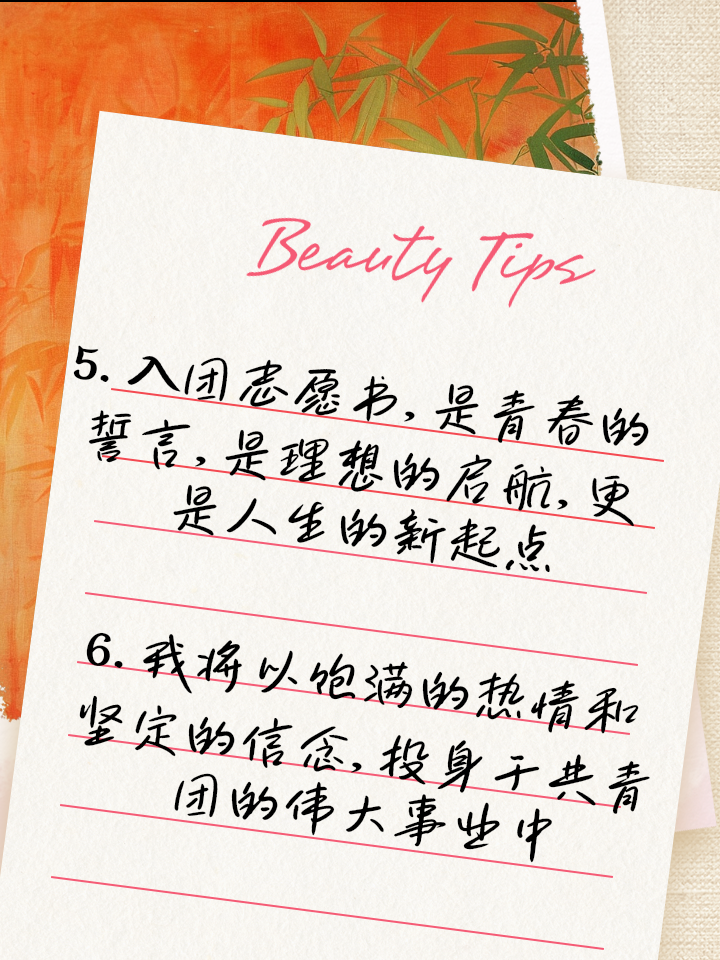 Beauty Tips
5. 入团志愿书，是青春的
誓言，是理想的启航，更
是人生的新起点
6. 我将以饱满的热情和
坚定的信念，投身于共青
团的伟大事业中